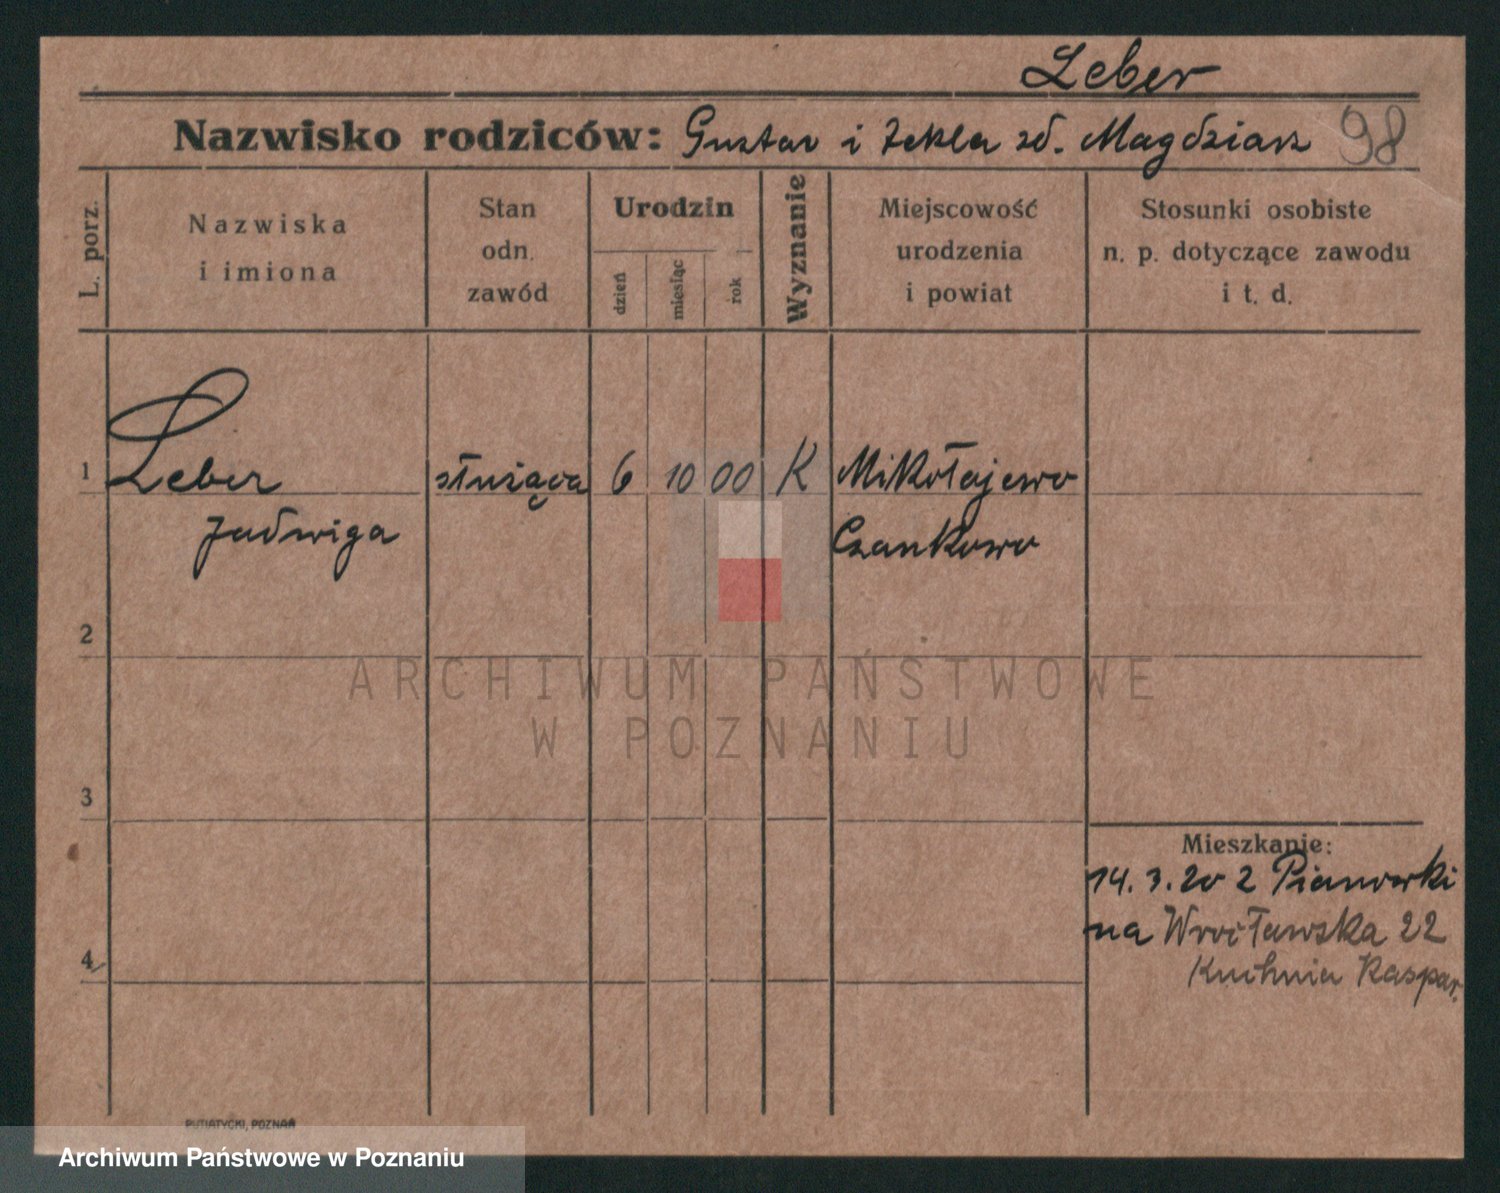 Leber
Nazwisko rodziców: Gustav i Tekla zd. Magdziarz 98
L. porz.
Nazwiska
i imiona
Stan
odn.
zawód
Urodzin
dzień
miesiąc
rok
Wyznanie
Miejscowość
urodzenia
i powiat
Stosunki osobiste
n. p. dotyczące zawodu
i t. d.
1 Leber służąca 6 10 00 K Mikołajewo
Jadwiga Czarnkowo
2
3
4
ARCHIWUM PAŃSTWOWE
W POZNANIU
Mieszkanie:
14. 3. 20 z
na Wrocławska 22
Kuchnia Kaspar.
PUTIATYCKI, POZNAŃ
Archiwum Państwowe w Poznaniu